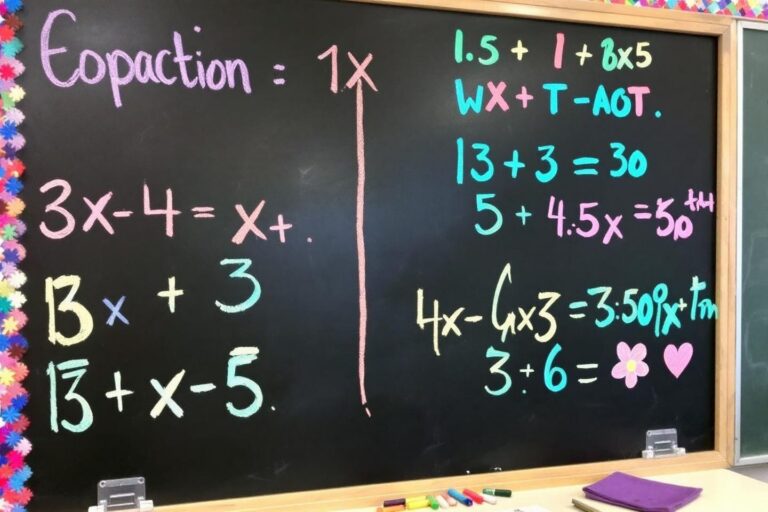 Eopaction = 1x
3x-4 = x+.
13x + 3
13 + x - 5.
1.5 + 1 + 8x5
WX + T - AOT.
13 + 3 = 30
5 + 4.5x = 50
4x-
x3 = 3:50
3 + 6 =